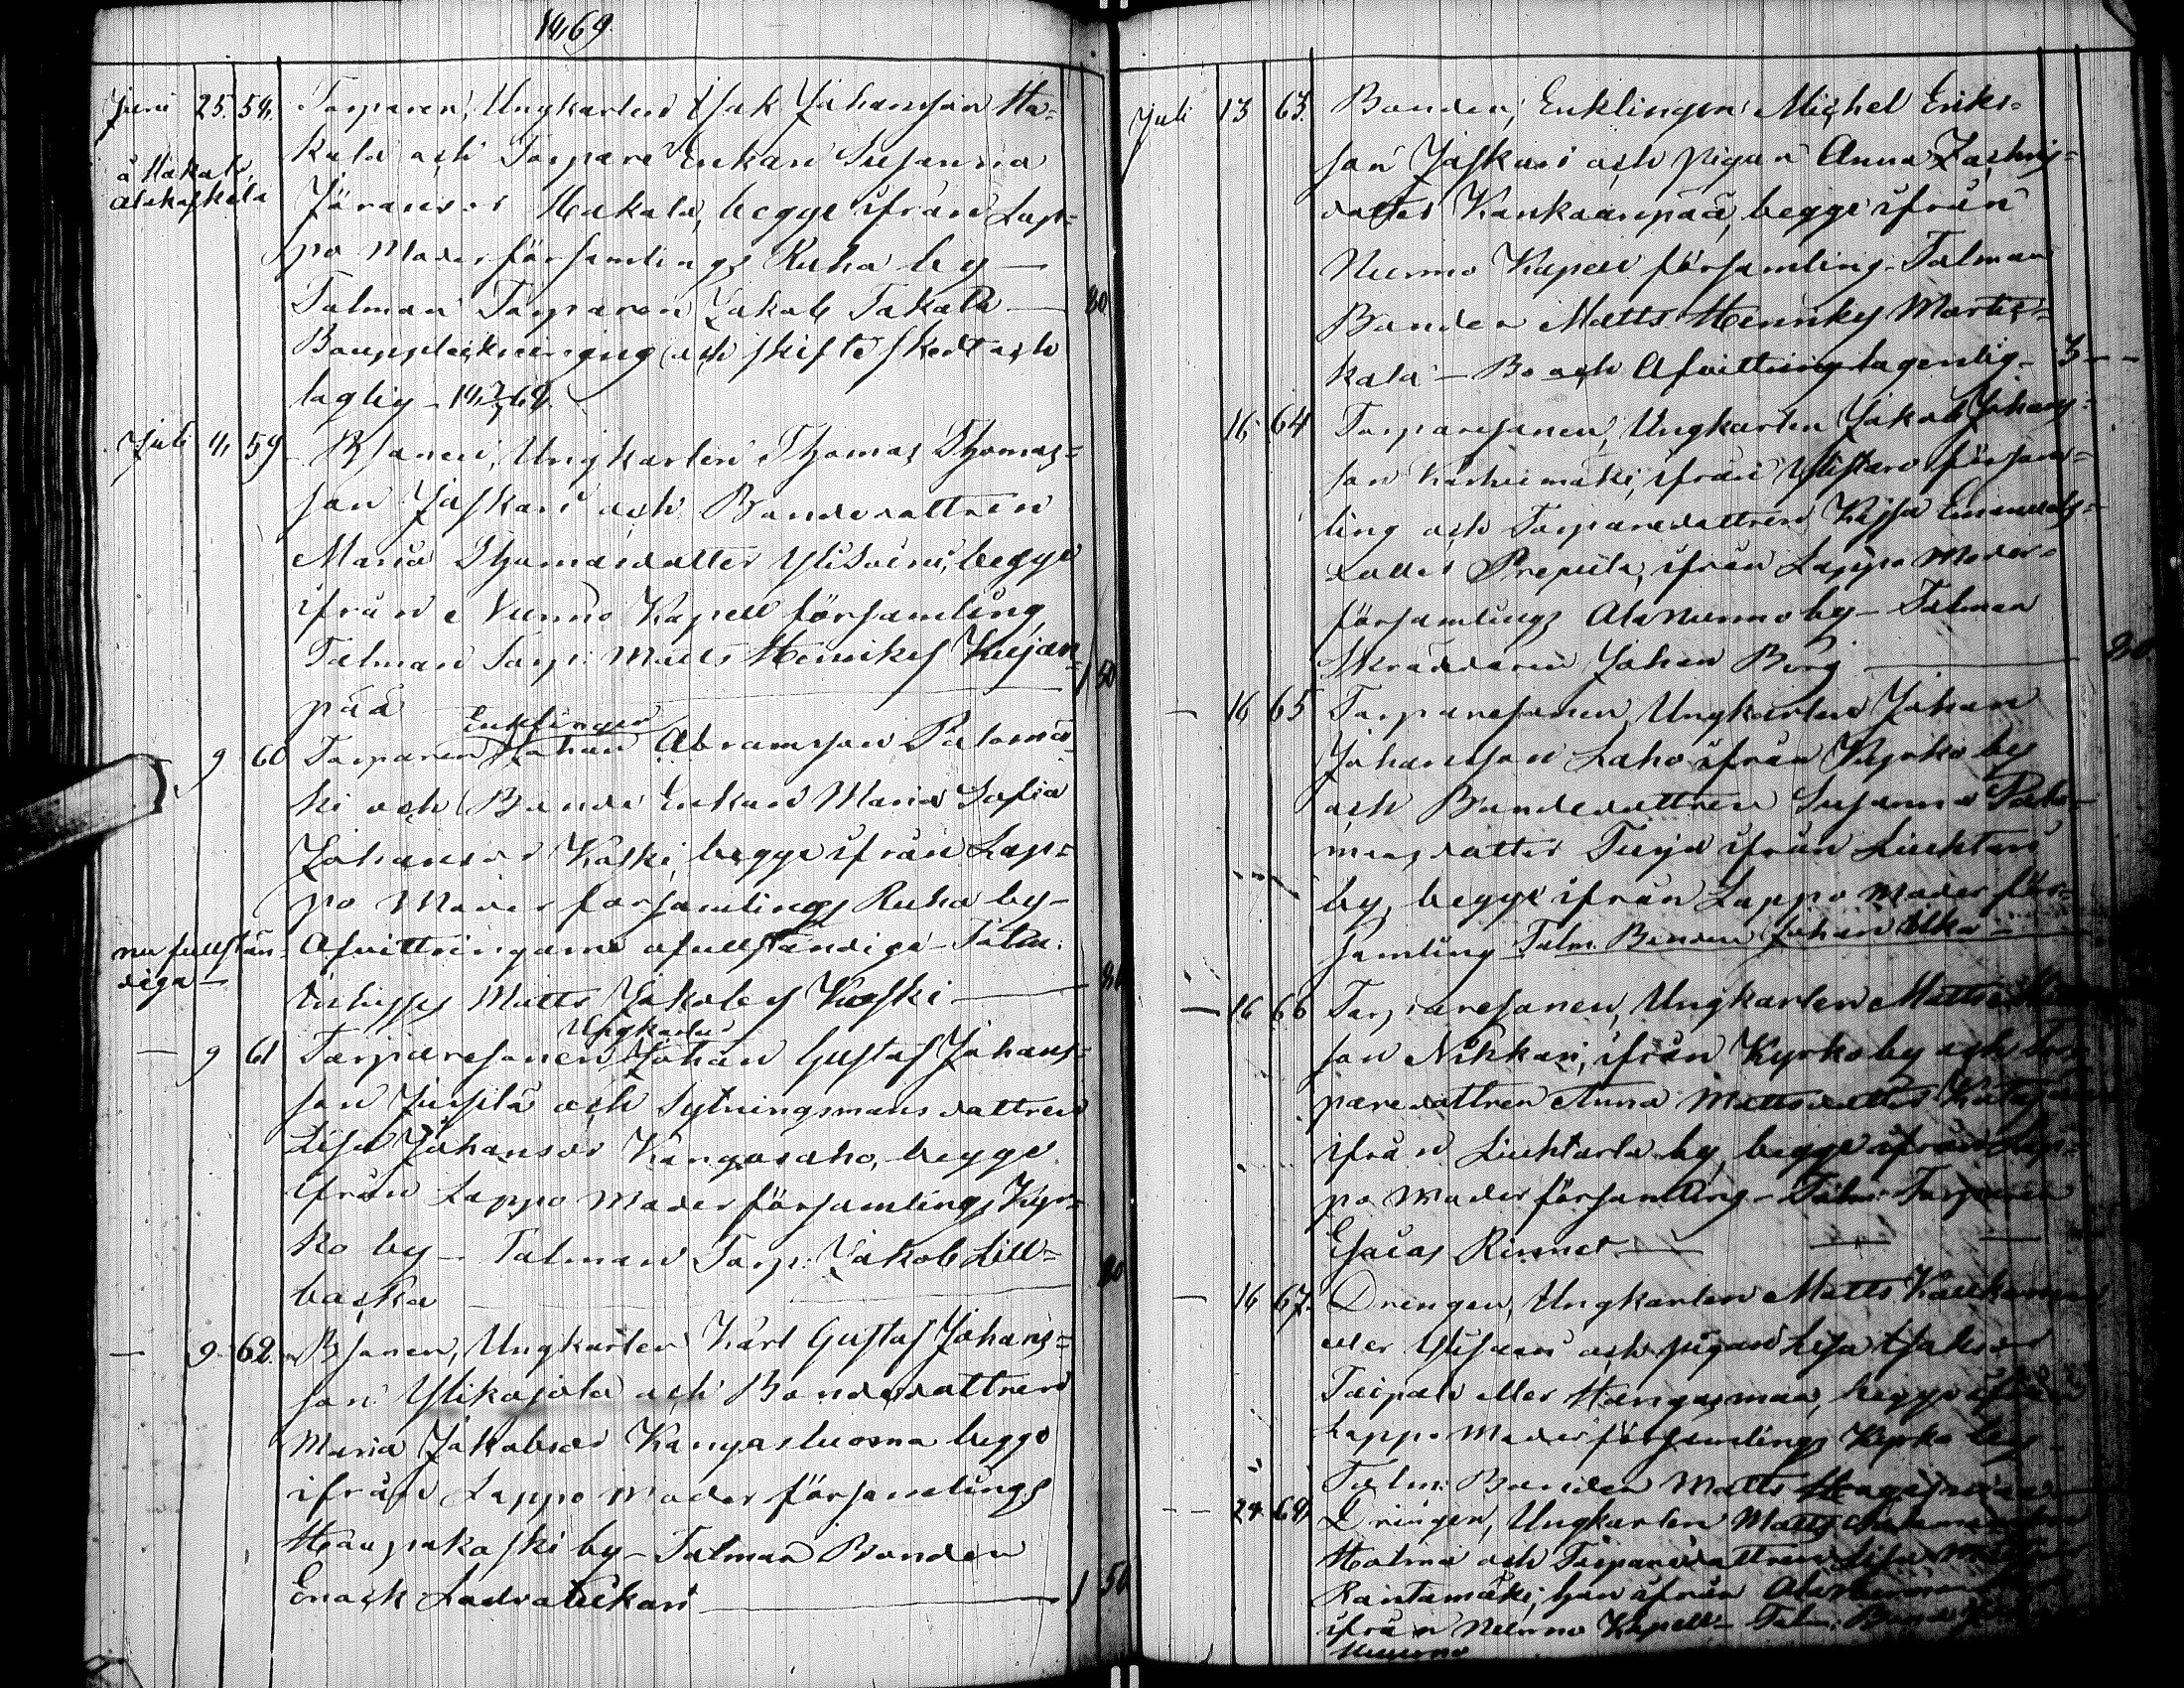 1869.
Juni 25. 58. Torparen, Ungkarlen Isak Johansson Ha=
å Hakala, kala och Torpare Enkan Susanna
Alakaskela Jöransdr Hakala, begge ifrån Lap=
po Moderförsamlings Ruha by —
Talman Torparen Jakob Takala — 80
Bouppteckning och skifte skedt och
laglig
Juli 4 59 Bsonen, Ungkarlen Thomas Thomas=
son Jaskari och Bondedottren
Maria Thomasdotter Ylisoini, begge
ifrån Nurmo Kapell församling
Talman Torp. Matts Henriks Kujan= 1 50
pää
Enklingen
9 60 Torparen Johan Abramsson Palomä
ki och Bonde Enkan Maria Sofia
Johansdr Koski, begge ifrån Lap=
po Moder församlings Ruha by —
nu fullstän= Afvittringarne ofullständiga — Talm.
diga — Matts Jakobs Koski — 80
Ungkarlen
— 9 61 Torparesonen Johan Gustaf Johans=
son Jussila och Sytningsmans dottren
Lisa Johansdr Kangasaho, begge
ifrån Lappo Moder församlings Kyr=
ko by — Talman Torp. Jakob Lill= 80
backa
— 9 62. Bsonen, Ungkarlen Karl Gustaf Johans=
son Ylikojola och Bondedottren
Maria Jakobsdr Kangasluoma begge
ifrån Lappo Moder församlings
Haapakoski by — Talman Bonden
Enack Ladvalickari — 1 50
Juli 13 63. Bonden, Enklingen Michel Eriks=
son Jaskari och pigan Anna Zachris=
dotter Kankaanpää, begge ifrån
Nurmo Kapell församling — Talman
Bonden Matts Henriks Martik=
kala — Bo och Afvittring lagenlig — 3 —
16 64 Torparesonen, Ungkarlen Jakob Johans=
son Karhumäki, ifrån Ylistaro försam=
ling och Torparedottren Kajsa Emanuels=
dotter Prepula, ifrån Lappo Moder=
församlings Alanurmo by — Talman
Skräddaren Johan Berg — 80
— 16 65 Torparesonen Ungkarlen Johan
Johansson Laho ifrån Kyrko by
och Bondedottren Susanna Salo=
monsdotter Turja ifrån Liuhtari
by, begge ifrån Lappo Moder för=
samling Talm. Bonden Johan Ilka —
— 16 66 Torparesonen, Ungkarlen Matts
son Nikkari, ifrån Kyrko by och Tor
paredottren Anna Mattsdotter
ifrån Liuhtari by, begge ifrån Lap=
po Moder församling — Talm. Torparen
Esaias Rinnet — — —
— 16 67. Drengen, Ungkarlen Matts
eller och pigan Lisa Isaksdr
Taipale eller Hangasmaa, begge ifrån
Lappo Moder församlings Kyrko by
Talm. Bonden Matts
— 24 68 Drengen, Ungkarlen Matts
Holma och Torparedottren Lisa
Rantamäki, han ifrån Alanurmo
ifrån Nurmo Kapell — Talm. Bond
Nurmo